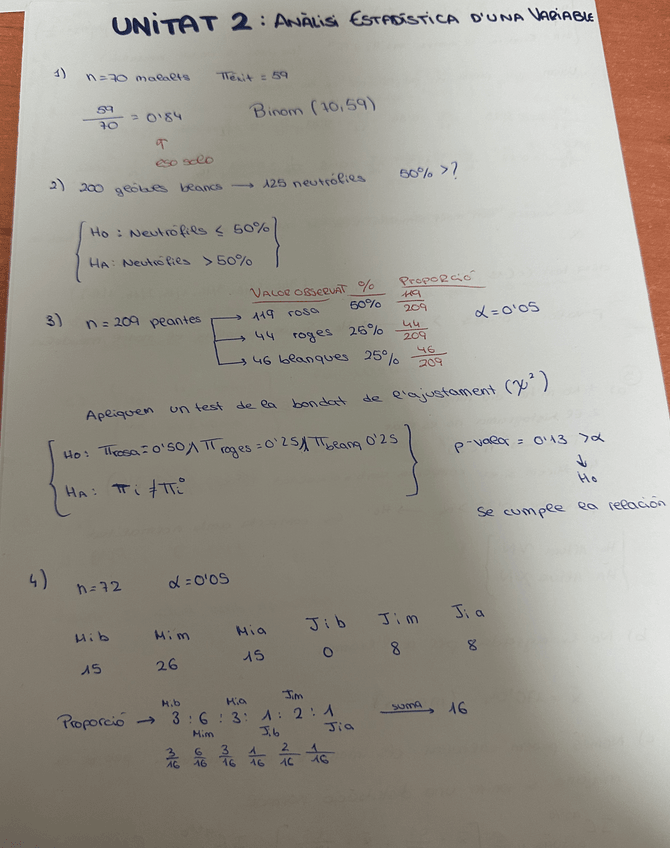 UNITAT 2: ANÀLISI ESTADÍSTICA D'UNA VARIABLE
1) n=70 malalts πèxit = 59
59/70 = 0'84 Binom (70,59)
↑
eso solo
2) 200 glòbuls blancs → 125 neutròfils 50% >?
H0: Neutròfils ≤ 50%
HA: Neutròfils > 50%
VALOR OBSERVAT % PROPORCIÓ
3) n = 209 plantes → 119 rosa 50% 119/209 α=0'05
→ 44 roges 25% 44/209
→ 46 blanques 25% 46/209
Apliquem un test de la bondat de l'ajustament (χ²)
H0: πrosa=0'50 ∧ πroges=0'25 ∧ πblanq 0'25 p-valor = 0'13 >α
↓
HA: πi ≠ πi° H0
Se cumple la relación
4) n=72 α=0'05
Mib Mim Mia Jib Jim Jia
15 26 15 0 8 8
Mib Mia Jim
Proporció → 3 : 6 : 3 : 1 : 2 : 1 SUMA → 16
Mim Jib Jia
3/16 6/16 3/16 1/16 2/16 1/16